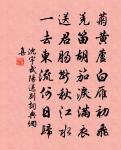 菊黄芦白雁初飞
羌笛胡笳泪满衣
送君肠断秋江水
一去东流何日归
沈宇武阳送别词典网